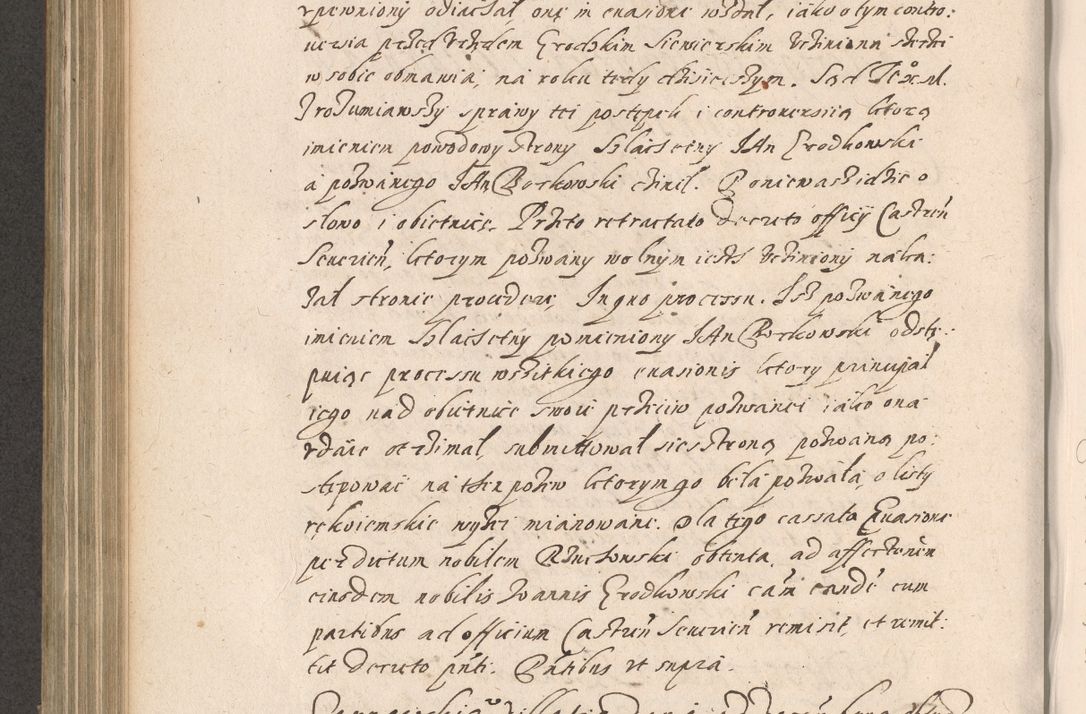 vpewniony odiachał onę in euasione wzdał, iako o tym contro:
uersia przed Vrzędem Grodzkim Siewierskim Vcziniona szerzei
w sobie obmawia, na roku teely dzisieiszym. Sąd
Zrozumiawszy sprawy tei postępek i controuersiią ktorą
imieniem powodowy strony Szlachetny JAn Grodkowski
a pozwanego JAn Borkowski czinił. Poniewasz idzie o
słowo i obietnicę. Przeto retractato decreto officij Castren̄
Seuerien̄, ktorym pozwany wolnym iest Vcziniony naka:
zał stronie procedere, In quo processu. Isz pozwanego
imieniem Szlachetny pomieniony JAn Borkowski odstę:
puiąc processu wszitkiego euasionis ktory principał
iego nad obietnicę swoię przeciw pozwanei iako ona
vdaie otrzimał, submittował sie stroną pozwaną po:
stępować na then pozew ktorym go beła pozwała, o listy
rękoiemskie wyżei mianowane. Dla tego cassata Euasione
per dictum nobilem obtenta, ad affectōnēm
eiusdem nobilis Joannis Grodkowski cām eandē cum
partibus ad officium Castren̄ Seuerien̄ remisit, et remit:
tit decreto pn̄ti. Pn̄tibus vt supra.